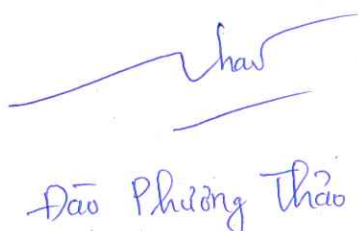 Thao
Đào Phương Thảo